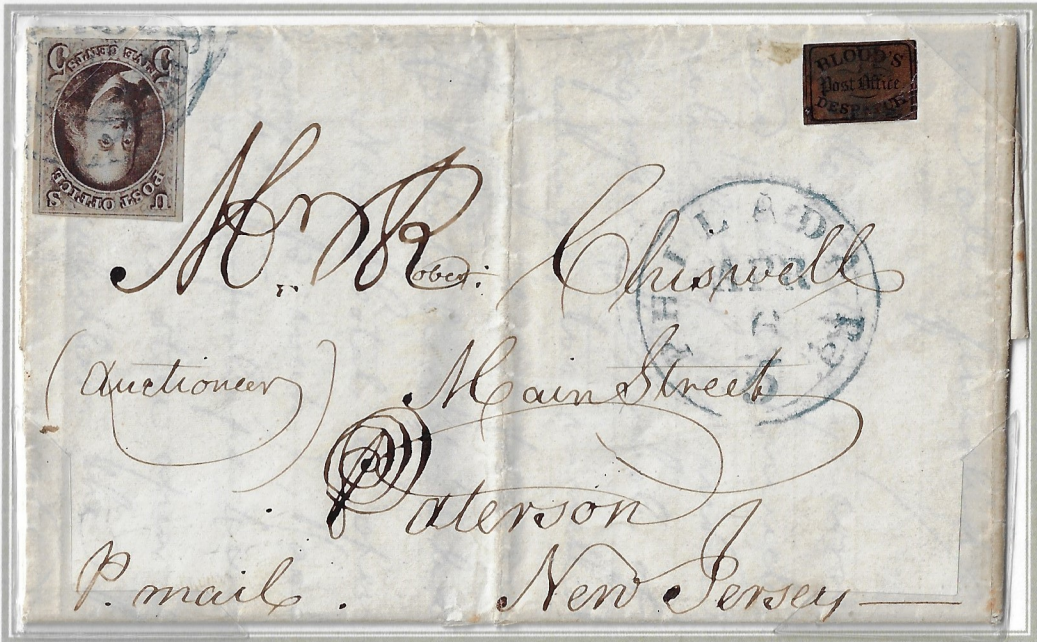 5 FIVE CENTS 5
POST OFFICE
U S
BLOOD'S
Post Office
DESPATCH
Mr. Robert: Chiswell
PHILADA Pa.
APR
6
5
(Auctioneer) Main Street
Paterson
P. mail. New Jersey